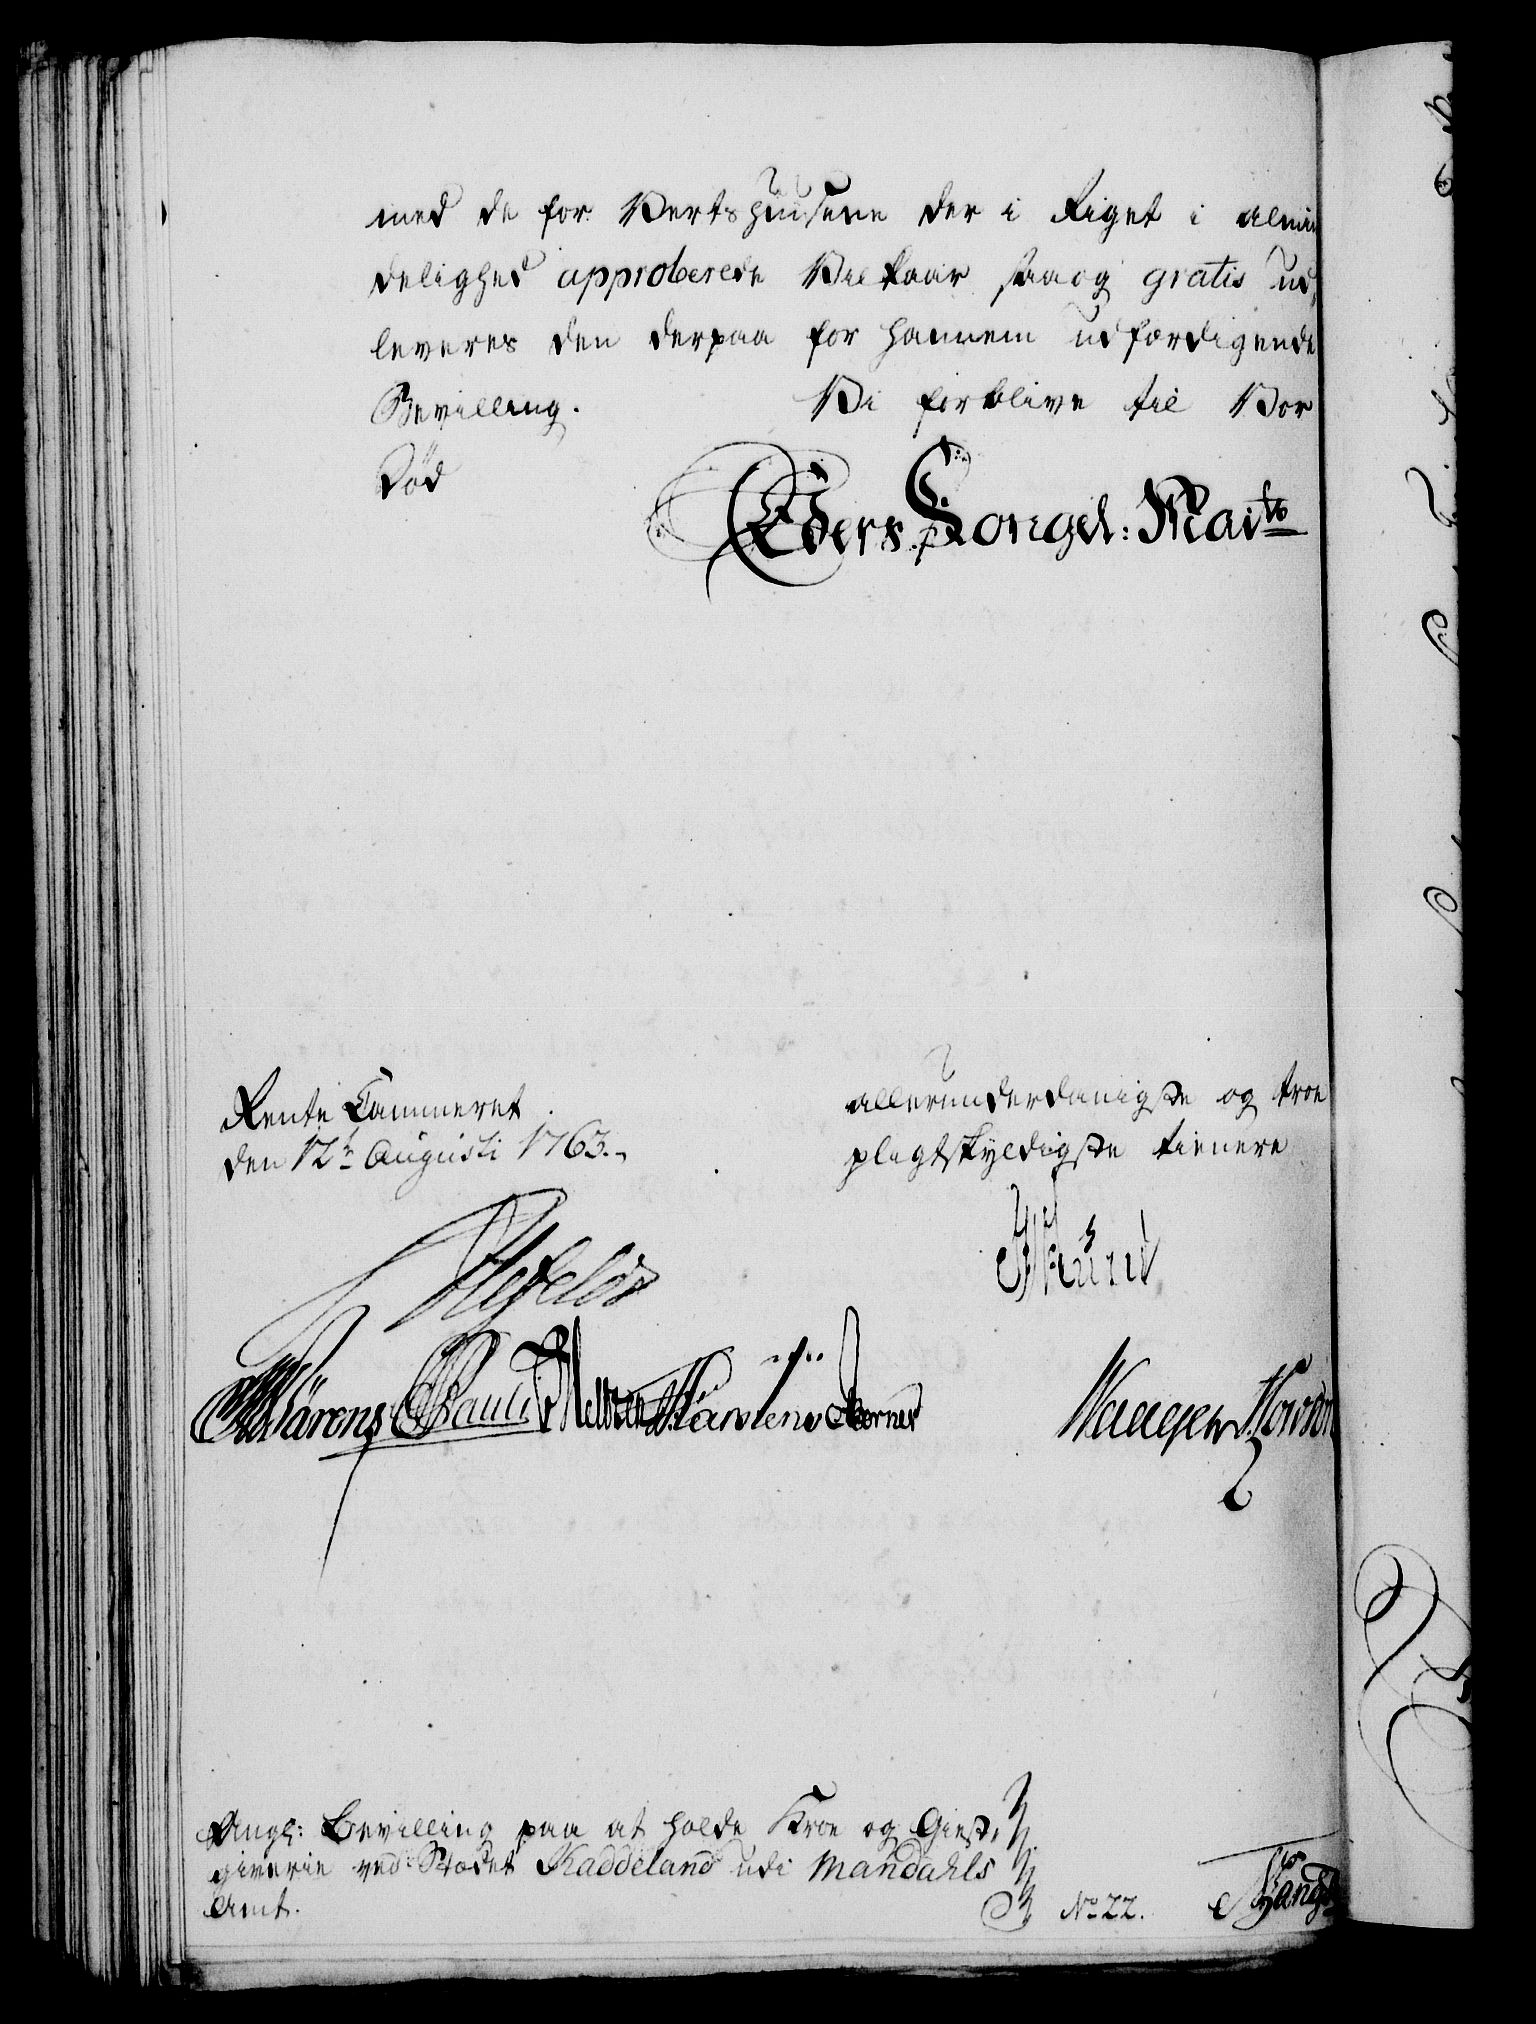 med de for Vertshuusene der i Riget i almin
delighed approberede Vilkaar saa og gratis ud,
leveres den derpaa for hannem udfærdigende
Bevilling. Vi forblive til Vor
Død
Eders Kongel: Maits
Rente Cammeret
den 12te Augusti 1763.
allerunderdanigste og troe
pligtskyldigste tienere
Wärens Pauli Karstens Kørner
Ang: Bevilling paa at holde Kroe og Giest,
giverie ved Stædet Kaddeland udi Mandahls
Amt.
No 22.